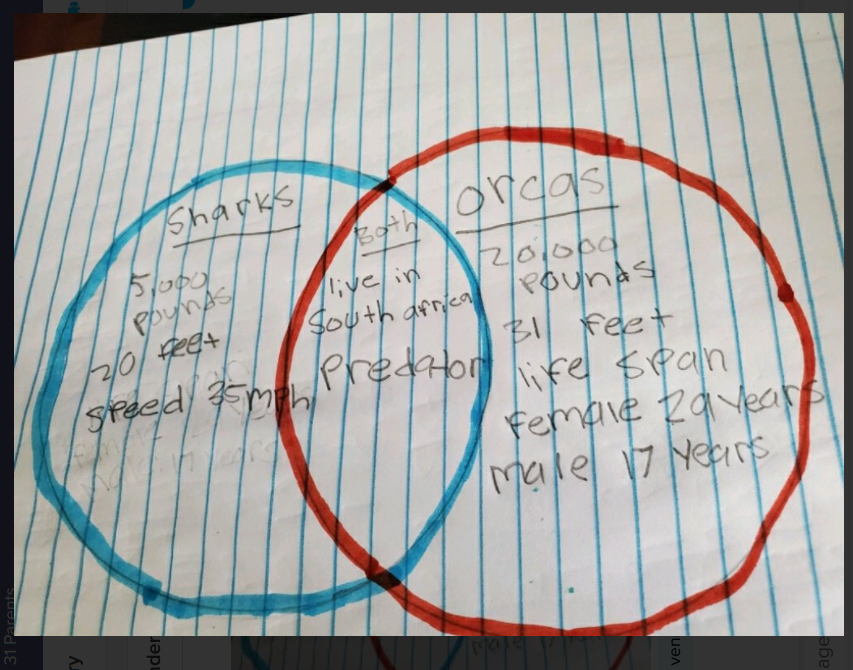 Sharks
5,000
pounds
20 feet
speed 35mph
female
male 17 years
Both
live in
South africa
Predator
orcas
20,000
pounds
31 feet
life span
female 29 years
male 17 years
31 Parents
ry
nder
male 17
ven
age